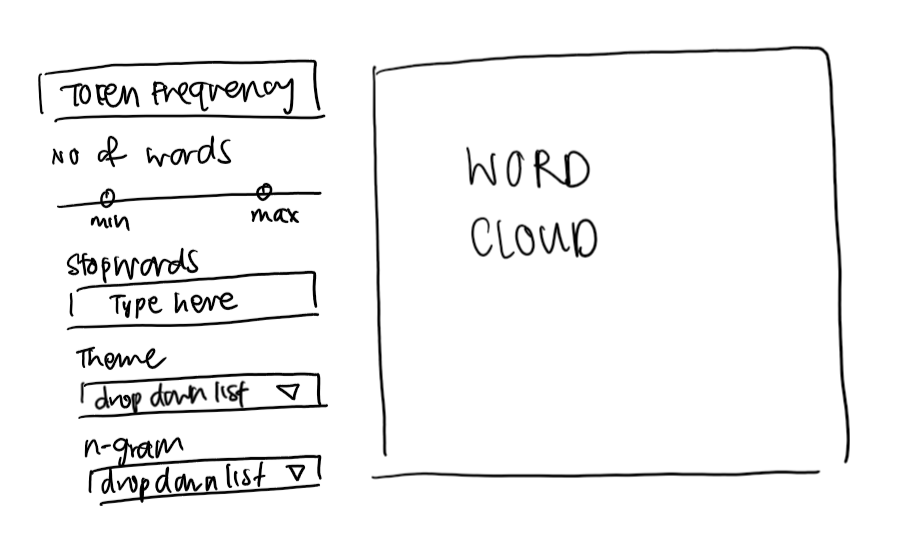 Token Frequency
No of words
min max
Stopwords
Type here
Theme
drop down list
n-gram
drop down list
WORD
CLOUD